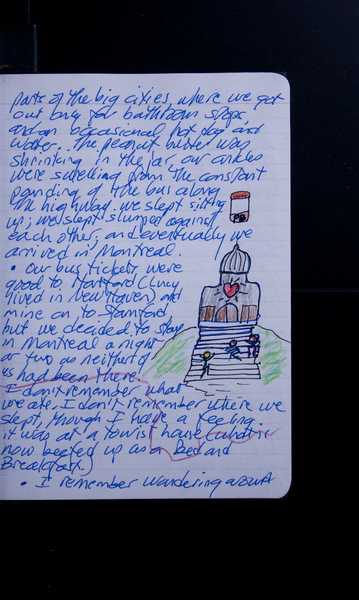 parts of the big cities, where we got
out only for bathroom stops,
and an occasional hot dog and
water.. The peanut butter was
shrinking in the jar, our ankles
were swelling from the constant
pounding of the bus along
the highway. we slept sitting
up; we slept slumped against
each other; and eventually we
arrived in Montreal.
• Our bus tickets were
good to Hartford (Lucy
lived in New Haven) and
mine on to Stamford,
but we decided to stay
in Montreal a night
or two as neither of
us had been there.
I don't remember what
we ate. I don't remember where we
slept, though I have a feeling
it was at a tourist house (what is
now beefed up as a Bed and
Breakfast.)
• I remember wandering around